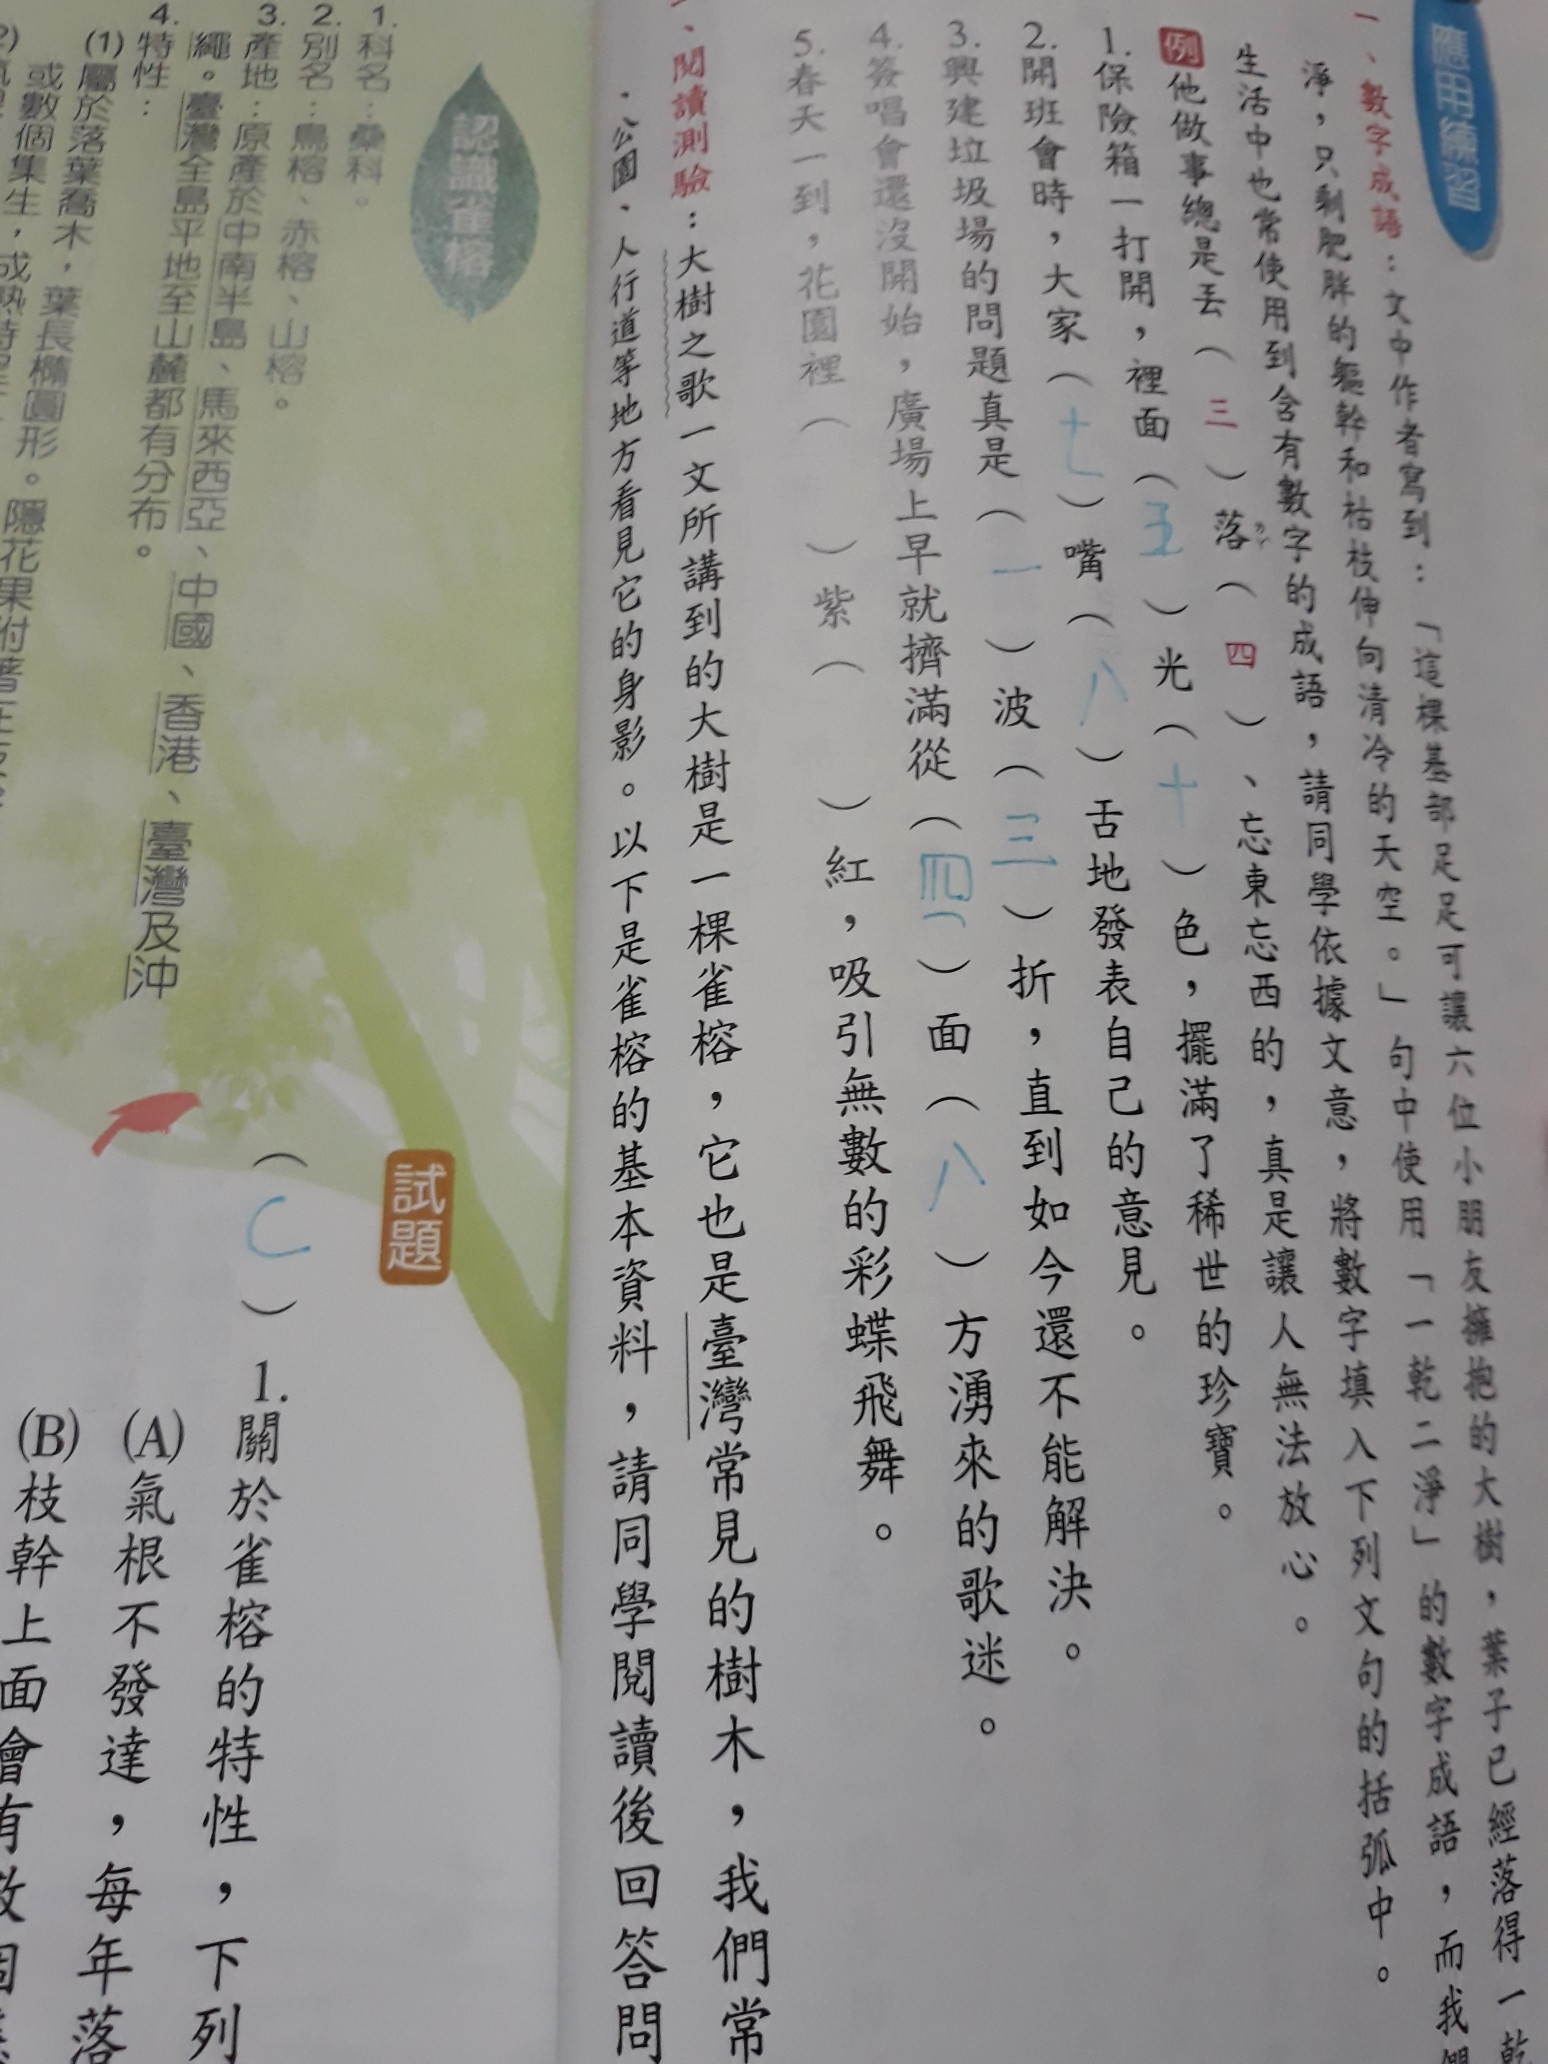 應用練習
一、數字成語：文中作者寫到：「這棵基部足足可讓六位小朋友擁抱的大樹，葉子已經落得一乾
淨，只剩肥胖的軀幹和枯枝伸向清冷的天空。」句中使用「一乾二淨」的數字成語，而我們
生活中也常使用到含有數字的成語，請同學依據文意，將數字填入下列文句的括弧中。
例他做事總是丟（三）落（四）、忘東忘西的，真是讓人無法放心。
1.保險箱一打開，裡面（五）光（十）色，擺滿了稀世的珍寶。
2.開班會時，大家（七）嘴（八）舌地發表自己的意見。
3.興建垃圾場的問題真是（一）波（三）折，直到如今還不能解決。
4.簽唱會還沒開始，廣場上早就擠滿從（四）面（八）方湧來的歌迷。
5.春天一到，花園裡（　）紫（　）紅，吸引無數的彩蝶飛舞。
、閱讀測驗：大樹之歌一文所講到的大樹是一棵雀榕，它也是臺灣常見的樹木，我們常
、公園、人行道等地方看見它的身影。以下是雀榕的基本資料，請同學閱讀後回答問
認識雀榕
1.科名：桑科。
2.別名：鳥榕、赤榕、山榕。
3.產地：原產於中南半島、馬來西亞、中國、香港、臺灣及沖
繩。臺灣全島平地至山麓都有分布。
4.特性：
(1)屬於落葉喬木，葉長橢圓形。隱花果附著在
或數個集生，成熟時
試題
（C）1.關於雀榕的特性，下列
(A)氣根不發達，每年落
(B)枝幹上面會有數個